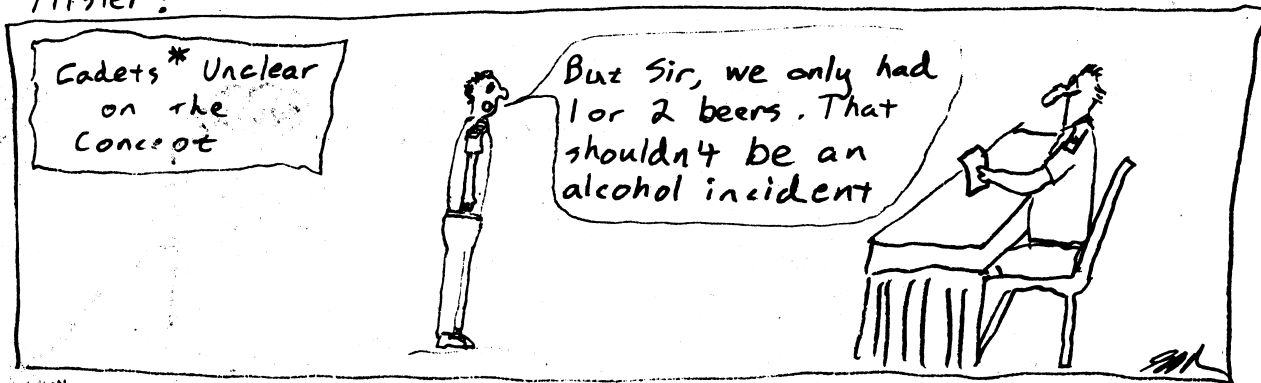 Cadets* Unclear
on the
Concept
But Sir, we only had
1 or 2 beers. That
shouldn't be an
alcohol incident